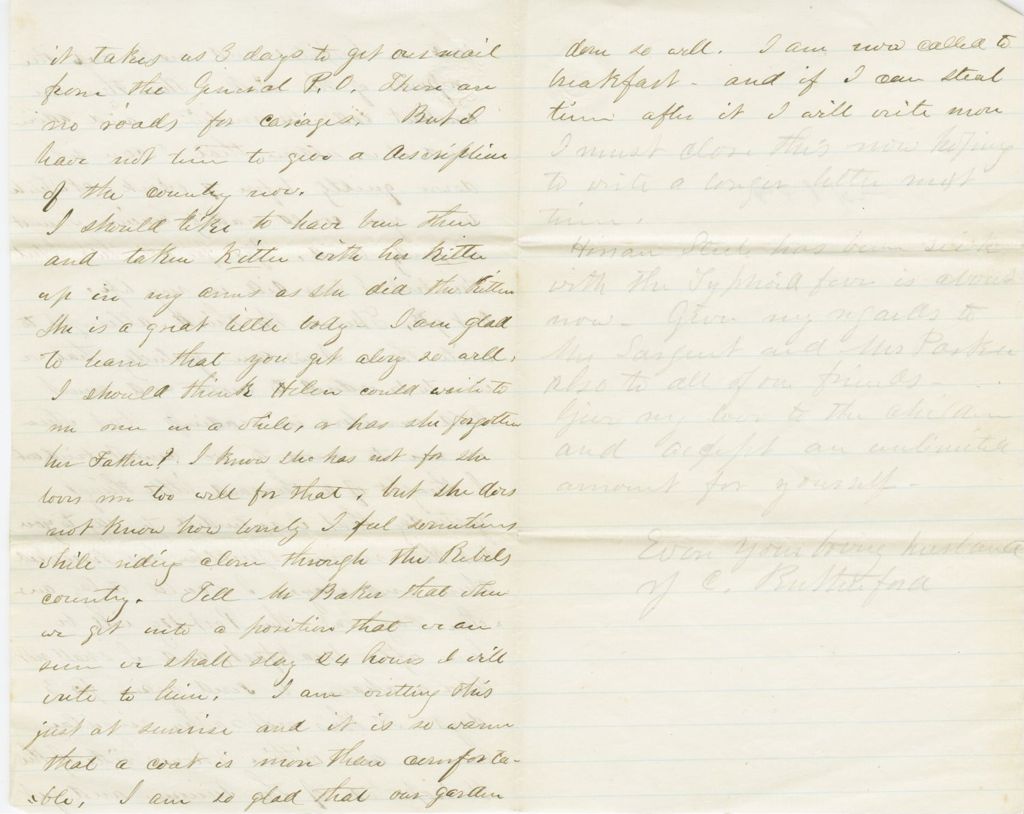 it takes us 3 days to get our mail
from the General P.O. There are
no roads for cariages. But I
have not time to give a description
of the country now.
I should like to have been there
and taken Kittie with her kitten
up in my arms as she did the kitten
She is a great little body - I am glad
to learn that you get along so well.
I should think Helen could write to
me once in a while, or has she forgotten
her Father? I know she has not for she
loves me too well for that, but she does
not know how lonely I feel sometimes
while riding alone through the Rebels
country. Tell Mr Baker that when
we get into a position that we are
sure we shall stay 24 hours I will
write to him. I am writing this
just at sunrise and it is so warm
that a coat is more than comforta-
ble. I am so glad that our garden
does so well. I am now called to
breakfast - and if I can steal
time after it I will write more
I must close this now hoping
to write a longer letter next
time.
Hiram Steele has been sick
with the Typhoid fever is about
now - Give my regards to
Mr Sargent and Mrs Parker
also to all of our friends
Give my love to the children
and accept an unlimited
amount for yourself -
Ever your loving husband
J C. Rutherford